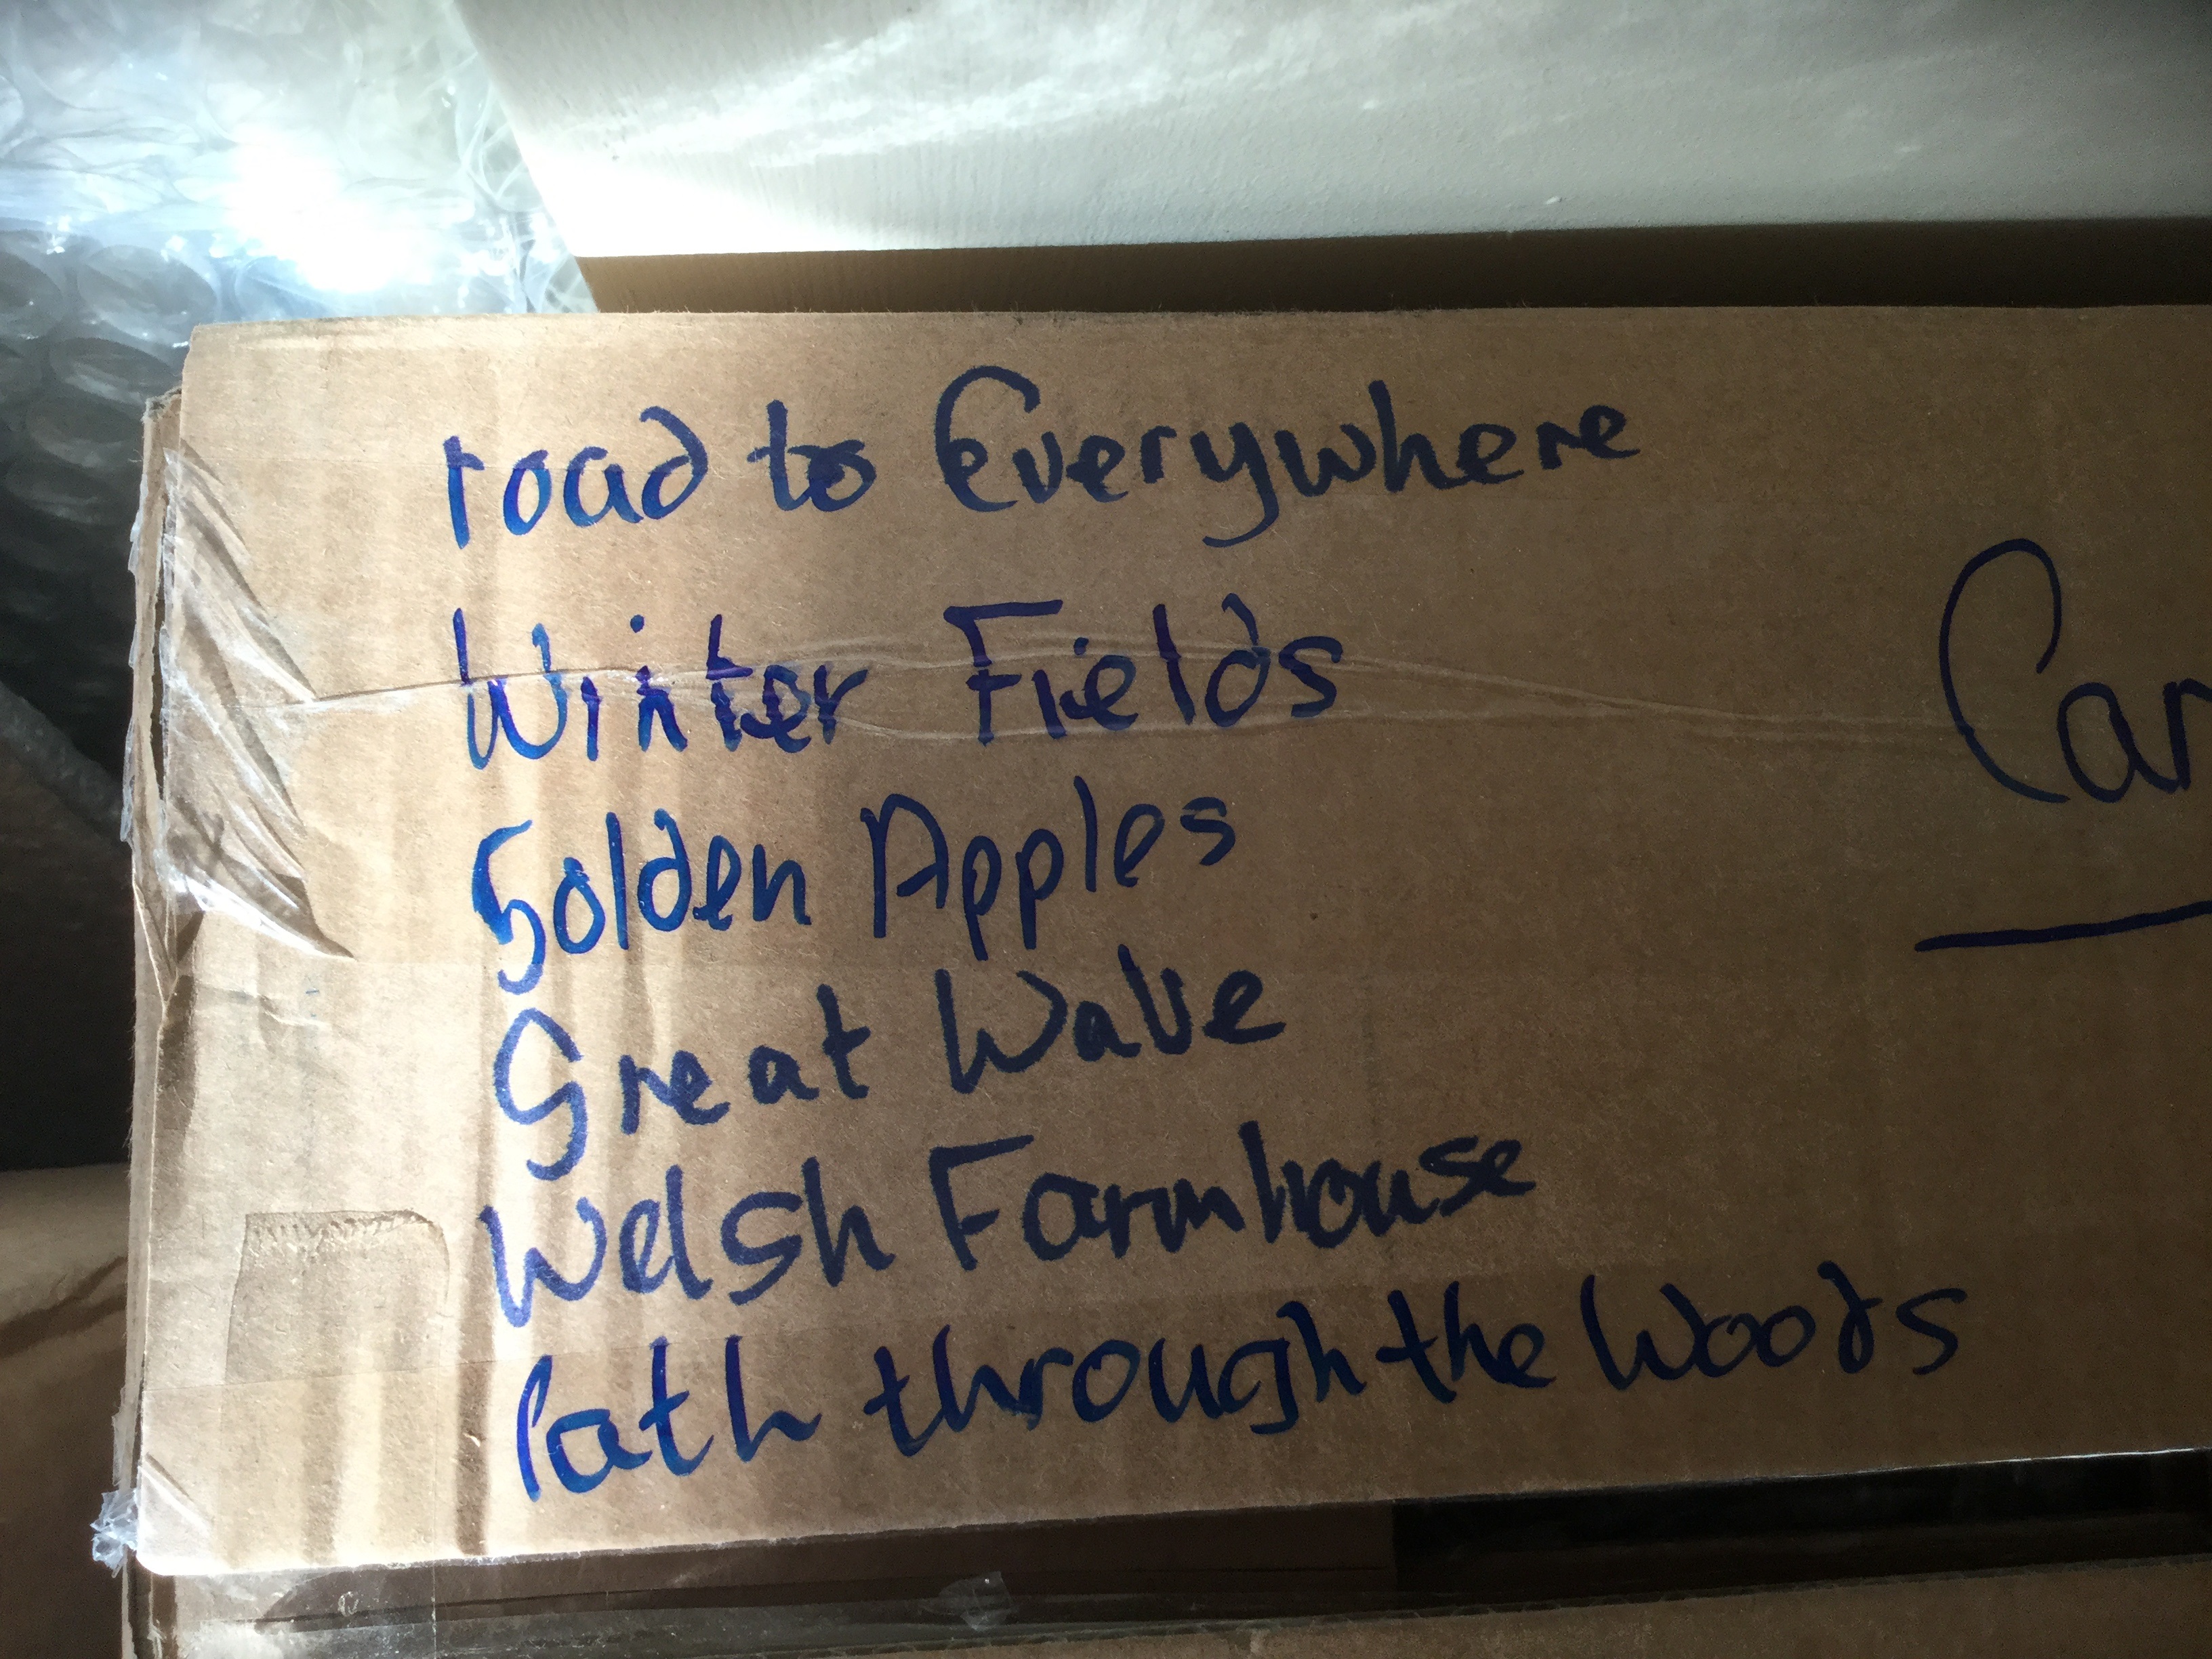 road to Everywhere
Winter Fields
Golden Apples
Great Wave
Welsh Farmhouse
Path through the Woods